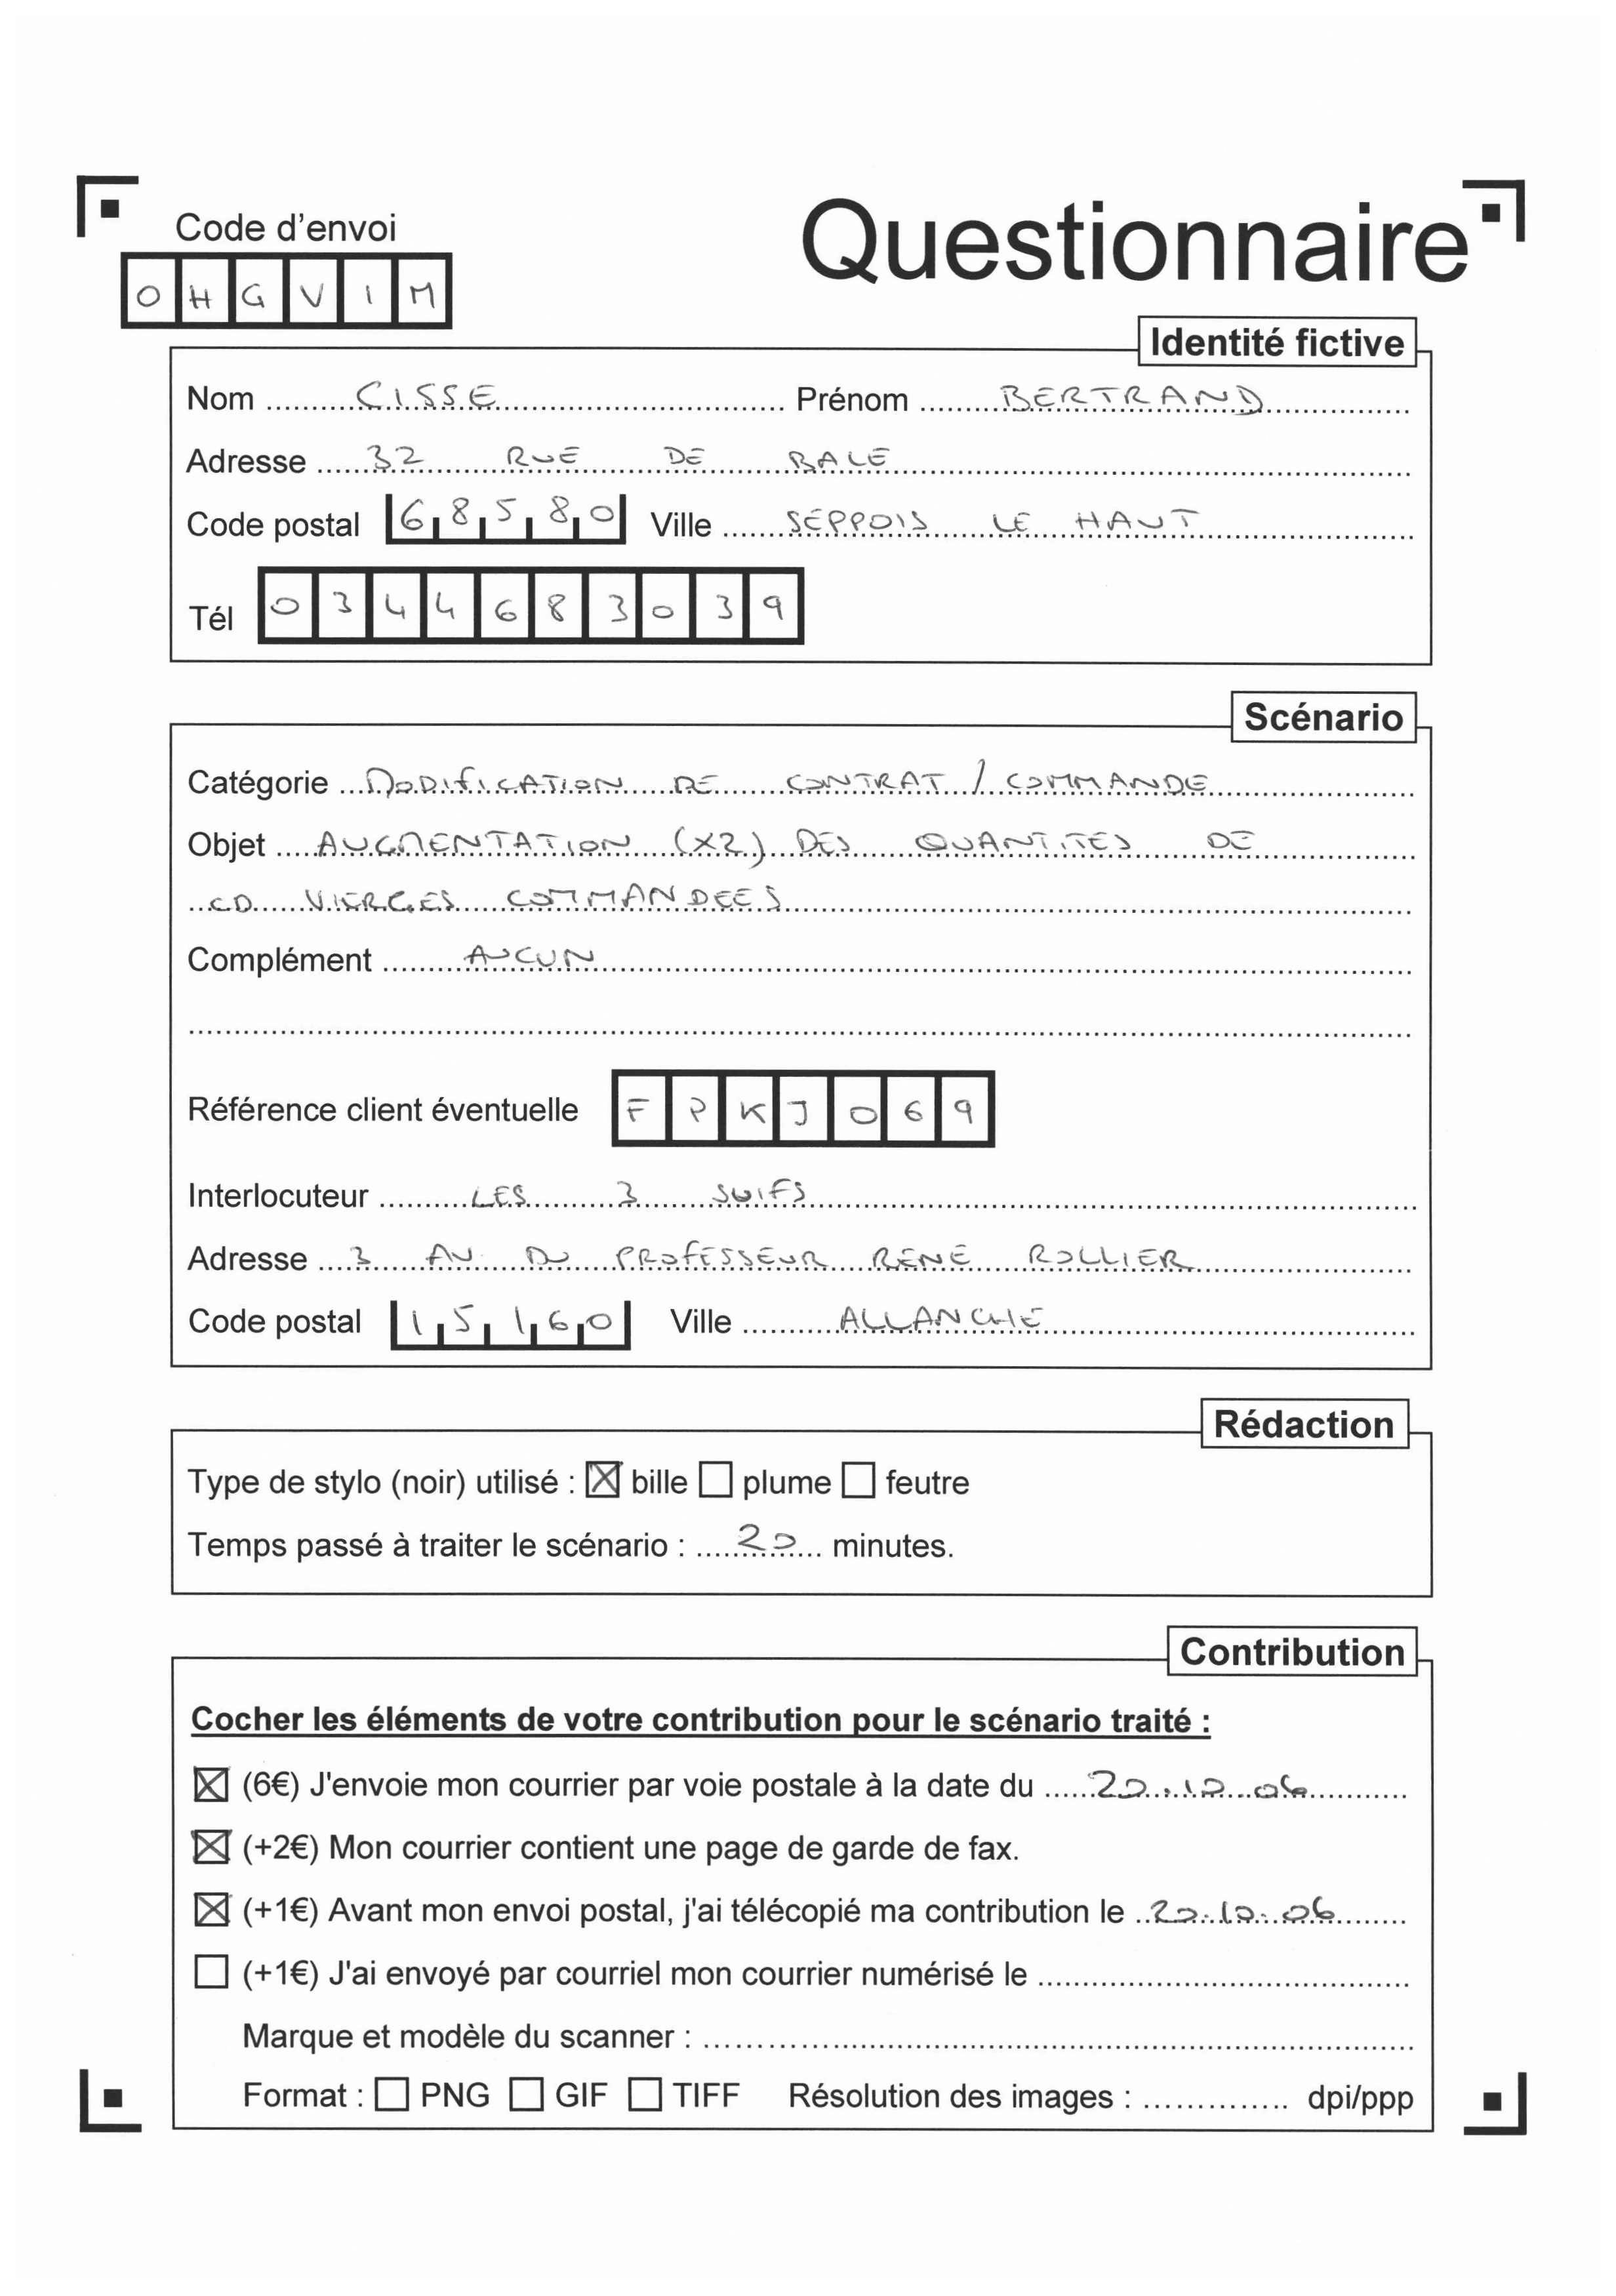 Code d'envoi
Questionnaire
OHGVIM
Identité fictive
Nom CISSE Prénom BERTRAND
Adresse 32 RUE DE BALE
Code postal 68580 Ville SEPPOIS LE HAUT
Tél 0344683039
Scénario
Catégorie MODIFICATION DE CONTRAT / COMMANDE
Objet AUGMENTATION (X2) DES QUANTITES DE
CD VIERGES COMMANDEES
Complément AUCUN
Référence client éventuelle FPKJ069
Interlocuteur LES 3 SUIFS
Adresse 3 AV DU PROFESSEUR RENE ROLLIER
Code postal 15160 Ville ALLANCHE
Rédaction
Type de stylo (noir) utilisé : ☒ bille ☐ plume ☐ feutre
Temps passé à traiter le scénario : 20 minutes.
Contribution
Cocher les éléments de votre contribution pour le scénario traité :
☒ (6€) J'envoie mon courrier par voie postale à la date du 20.10.06
☒ (+2€) Mon courrier contient une page de garde de fax.
☒ (+1€) Avant mon envoi postal, j'ai télécopié ma contribution le 20.10.06
☐ (+1€) J'ai envoyé par courriel mon courrier numérisé le
Marque et modèle du scanner :
Format : ☐ PNG ☐ GIF ☐ TIFF Résolution des images : dpi/ppp